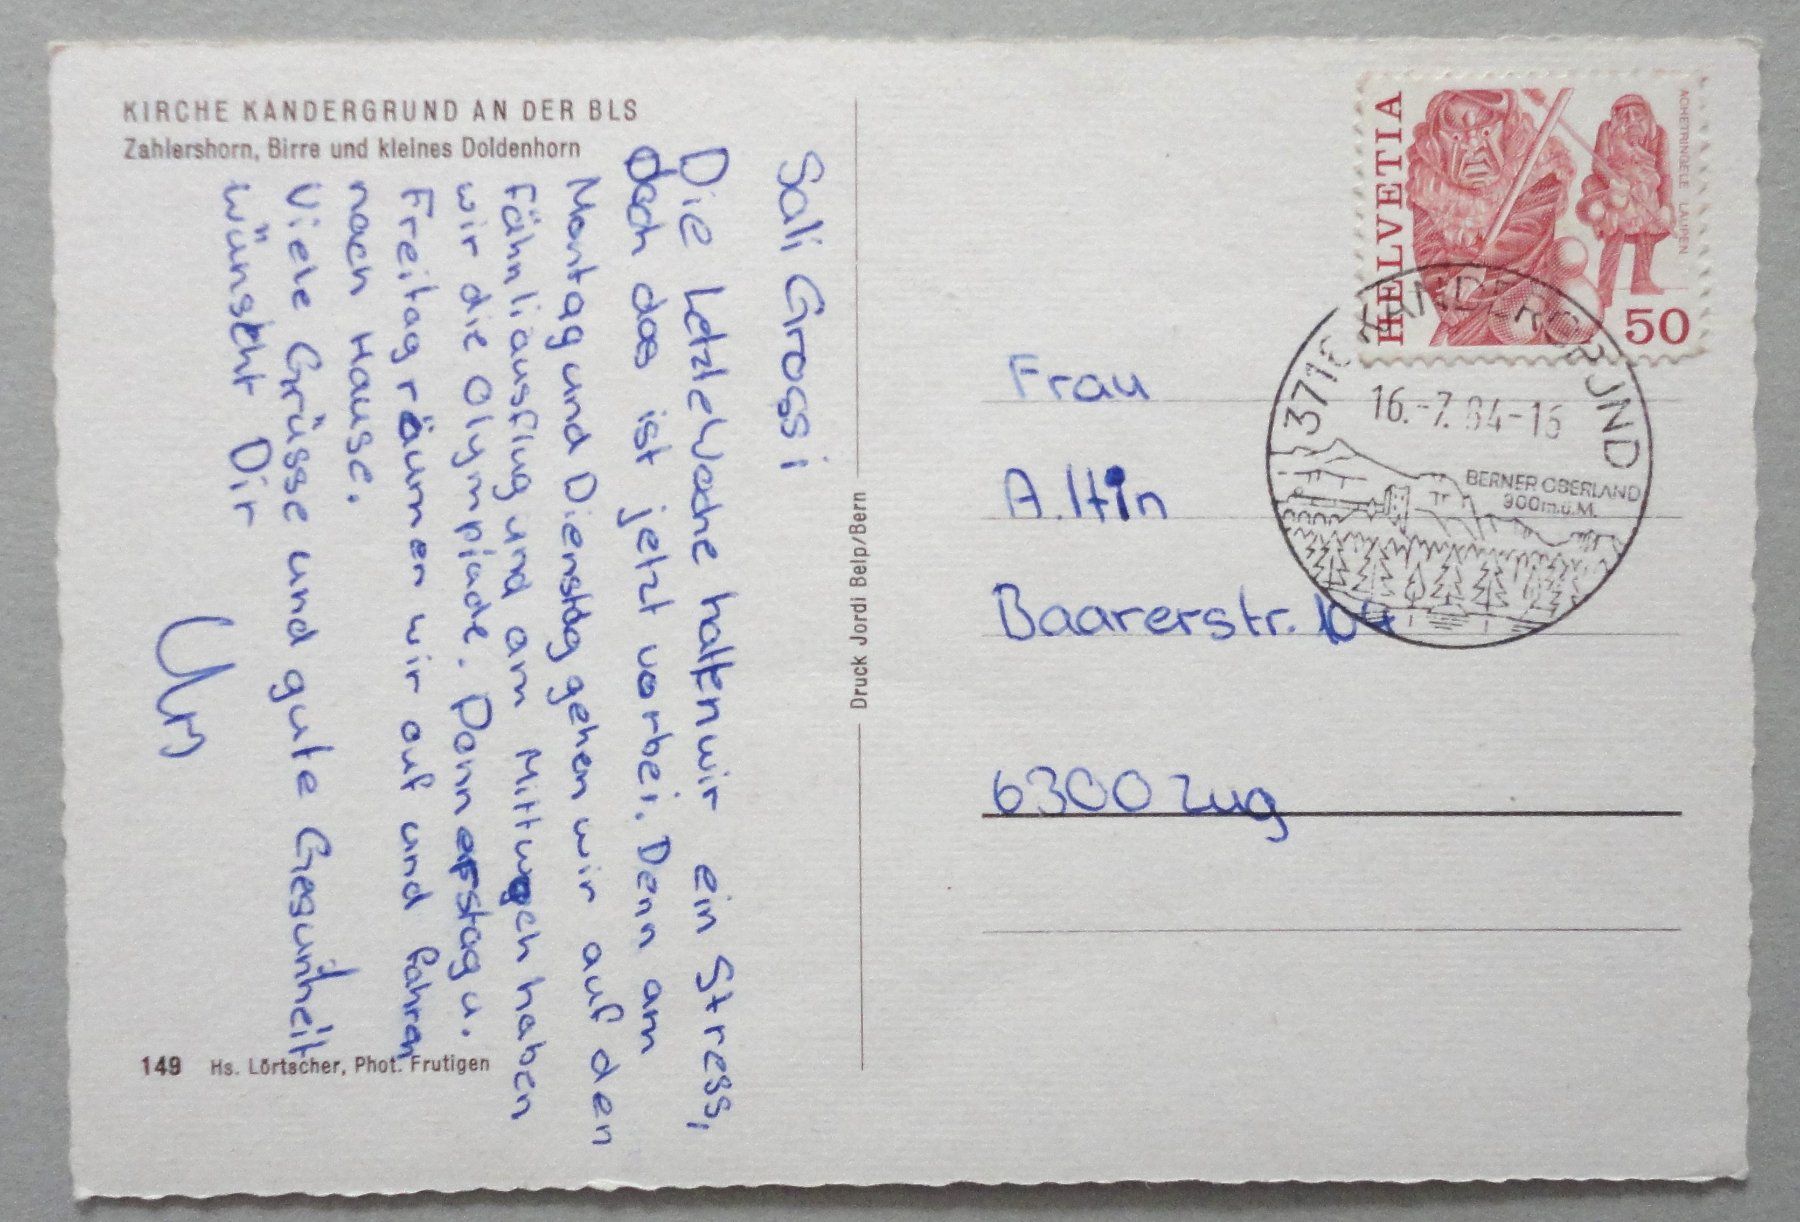 KIRCHE KANDERGRUND AN DER BLS
Zahlershorn, Birre und kleines Doldenhorn
Sali Grossi
Die letzte Woche hatten wir ein Stress,
doch das ist jetzt vorbei. Denn am
Montag und Dienstag gehen wir auf den
Fähnliausflug und am Mittwoch haben
wir die Olympiade. Donnerstag u.
Freitag räumen wir auf und fahren
nach Hause.
Viele Grüsse und gute Gesundheit
wünscht Dir
Urs
149 Hs. Lörtscher, Phot. Frutigen
Druck Jordi Belp/Bern
HELVETIA
ACHETRINGELE LAUPEN
50
3716 KANDERGRUND
16.-7.84-16
BERNER OBERLAND
900m.ü.M.
Frau
A. Itin
Baarerstr. 104
6300 Zug